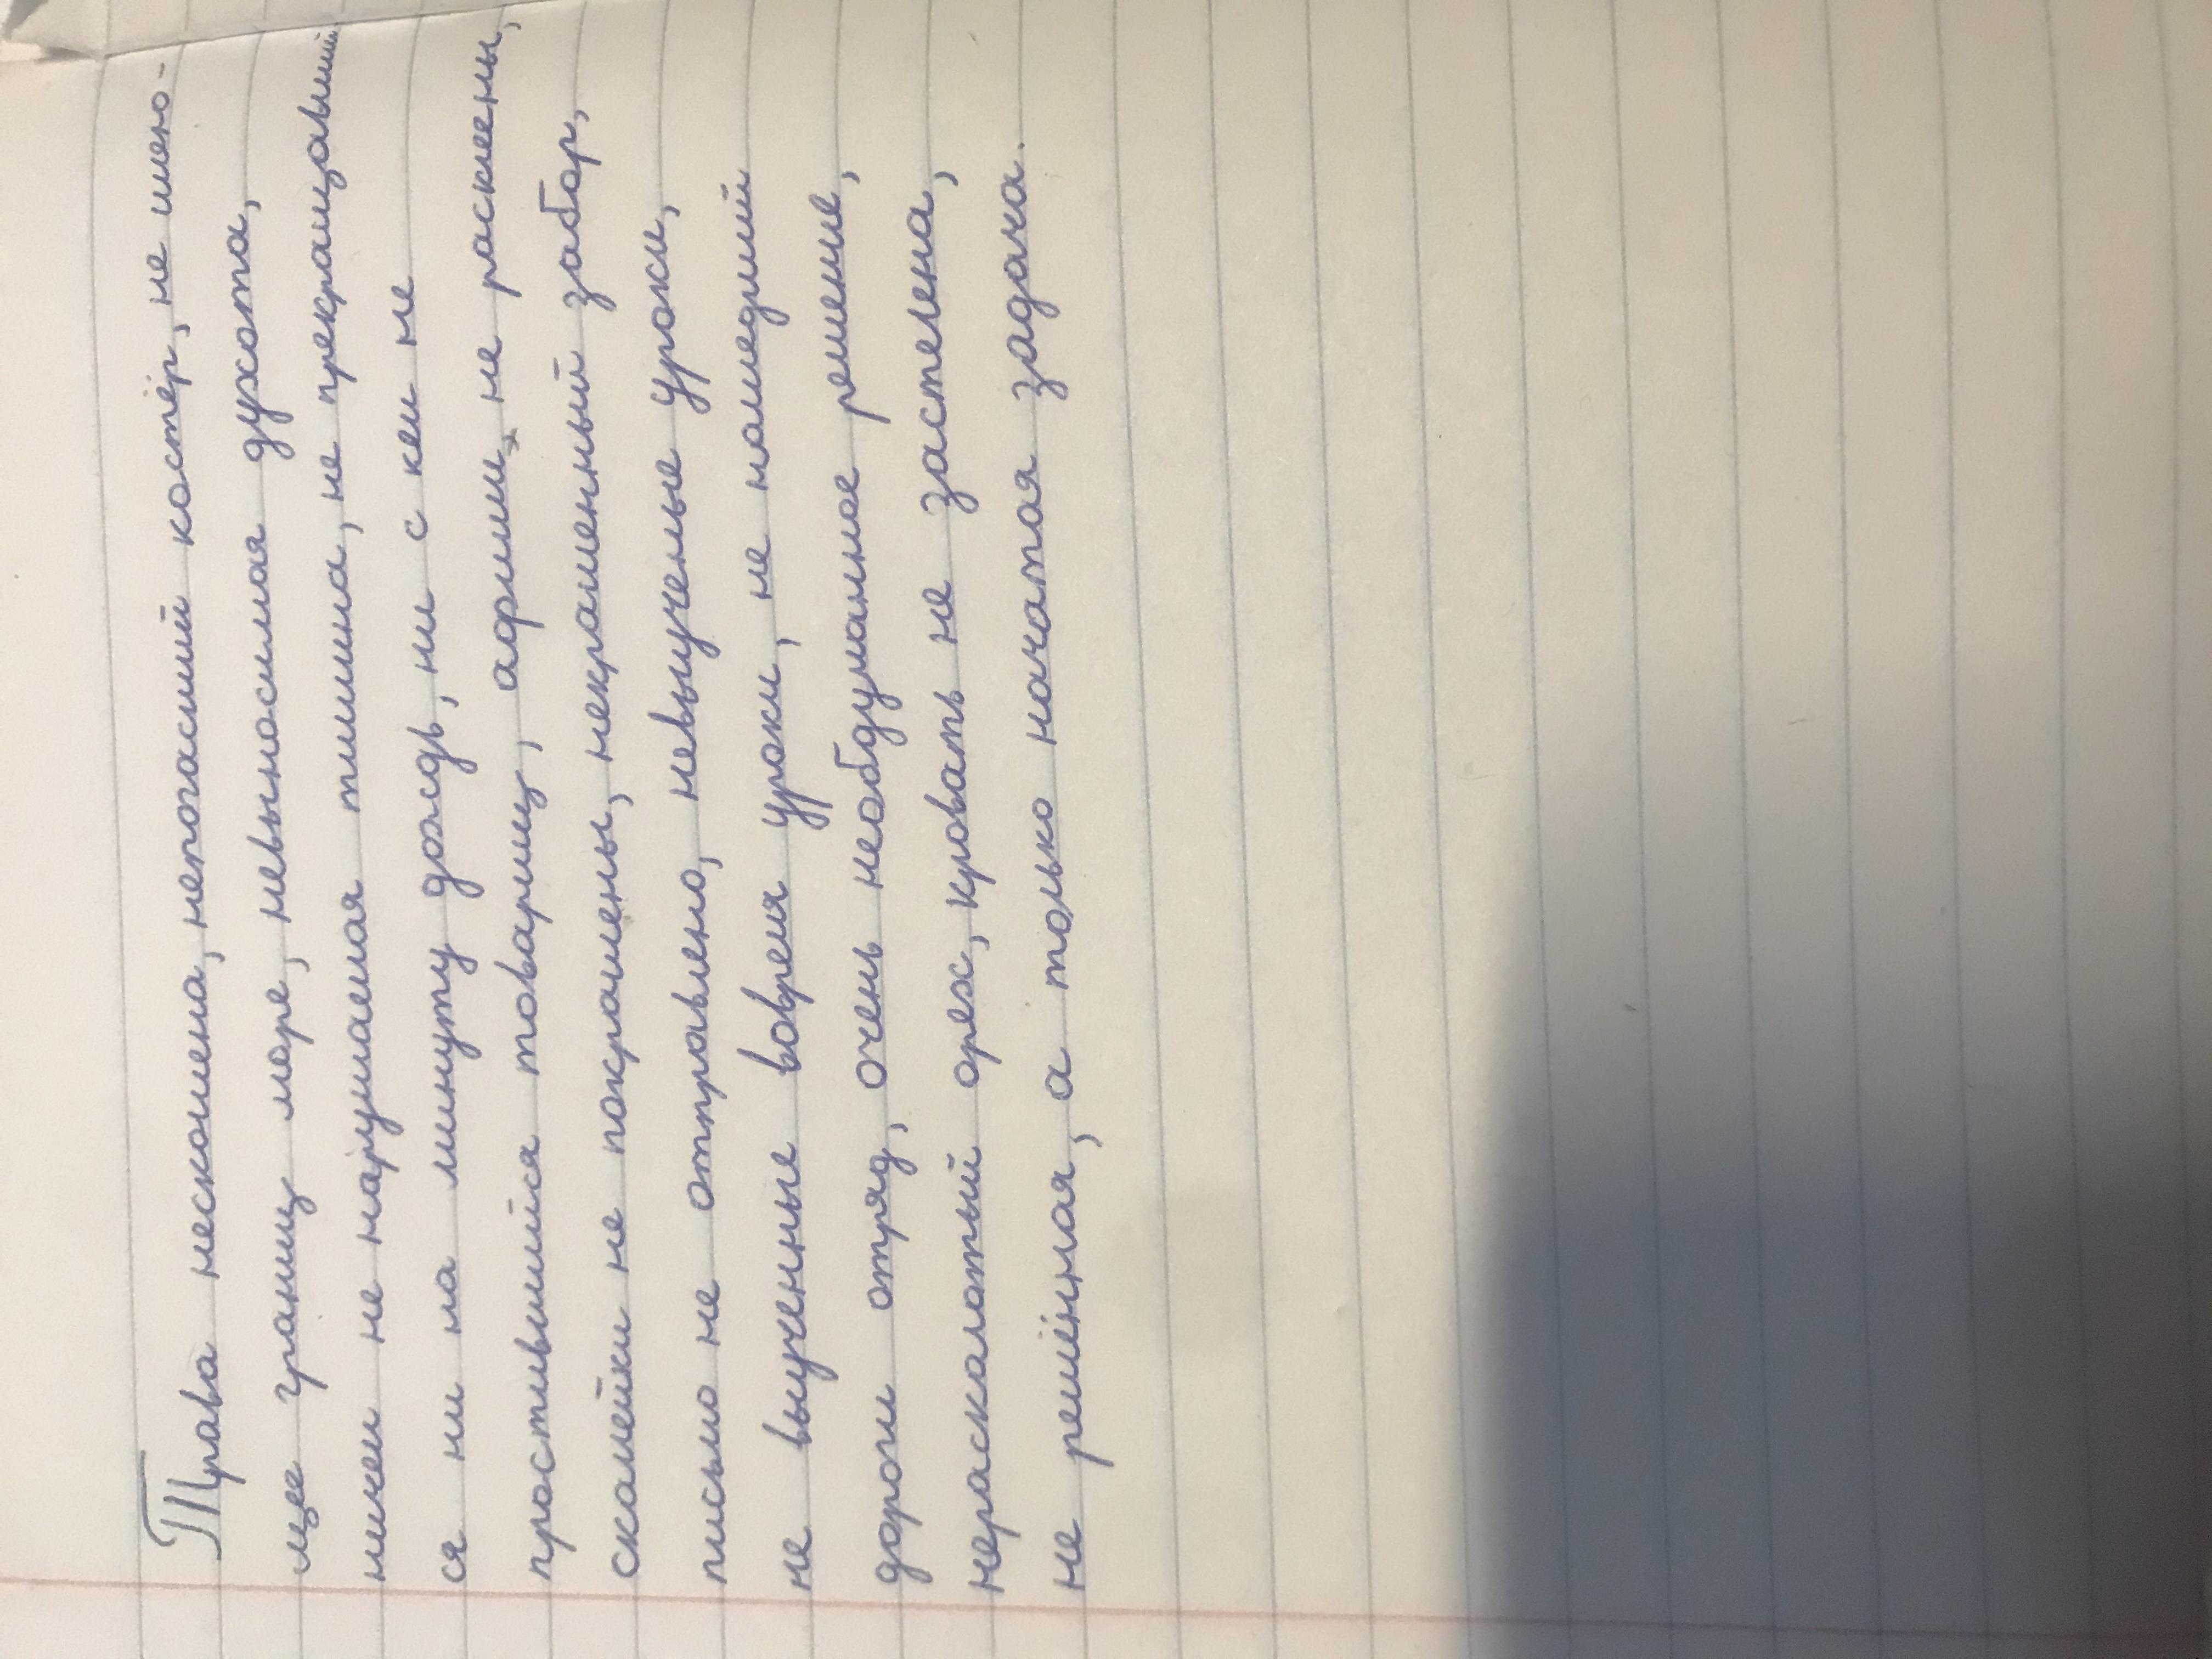 Трава нескошена, непогасший костёр, не имею-
щее границ море, невыносимая духота,
никем не нарушаемая тишина, не прекращавший
ся ни на минуту дождь, ни с кем не
простившийся товарищ, афиши не расклеены,
скамейки не покрашены, некрашенный забор,
письмо не отправлено, невыученые уроки,
не выученные вовремя уроки, не нашедший
дороги отряд, очень необдуманное решение,
нерасколотый орех, кровать не застелена,
не решённая, а только начатая задача.